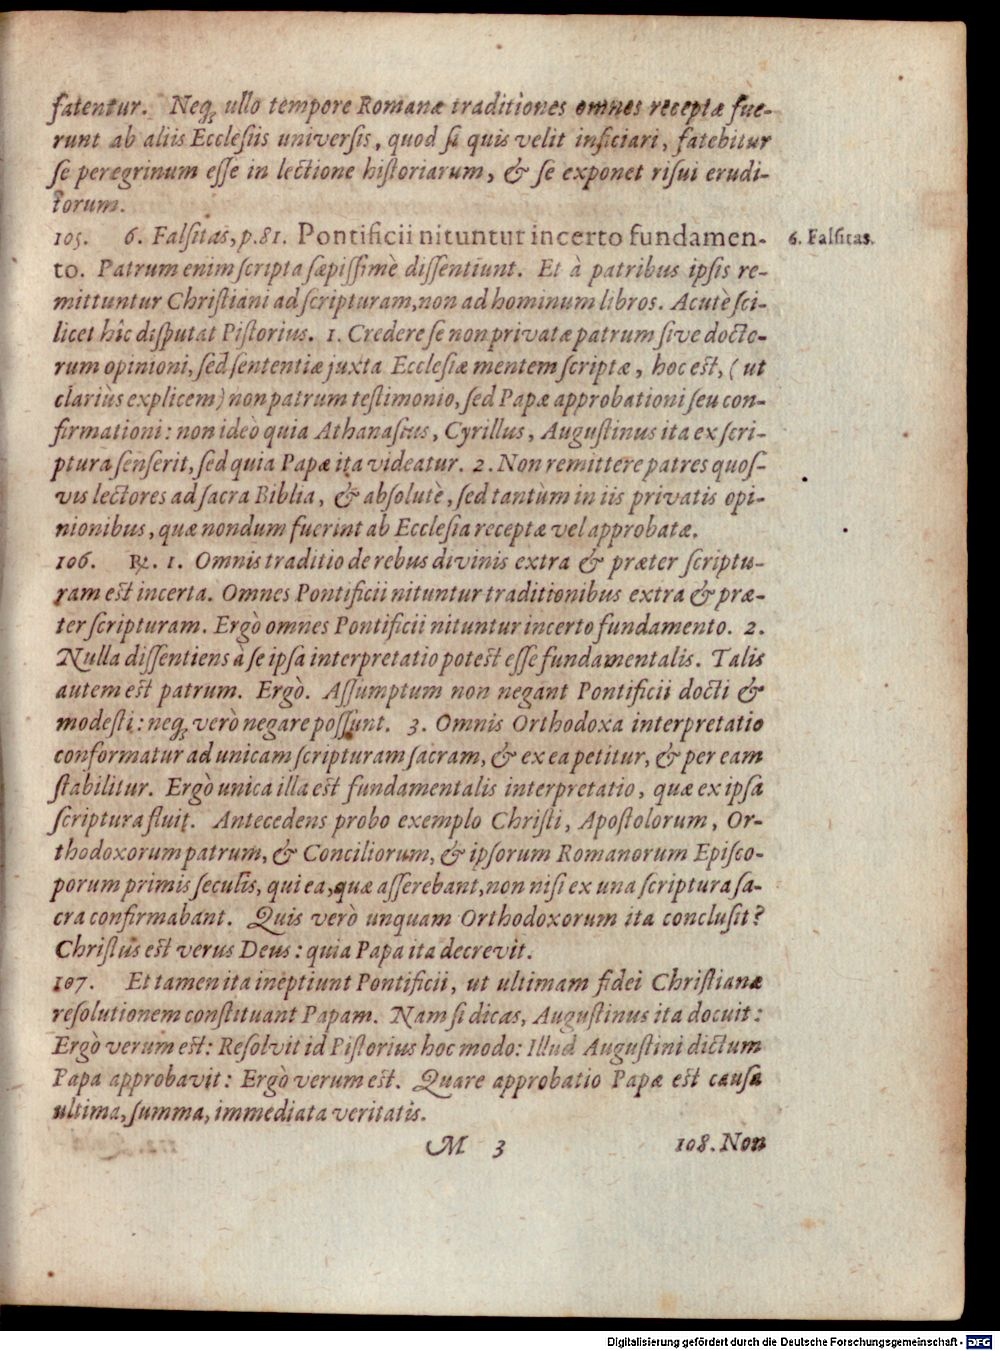 fatentur. Neq; ullo tempore Romanæ traditiones omnes receptæ fue-
runt ab aliis Ecclesiis universis, quod si quis velit inficiari, fatebitur
se peregrinum esse in lectione historiarum, & se exponet risui erudi-
torum.
105. 6. Falsitas, p. 81. Pontificii nituntur incerto fundamen-
6. Falsitas.
to. Patrum enim scripta sæpissimè dissentiunt. Et à patribus ipsis re-
mittuntur Christiani ad scripturam, non ad hominum libros. Acutè sci-
licet hîc disputat Pistorius. 1. Credere se non privatæ patrum sive docto-
rum opinioni, sed sententiæ juxta Ecclesiæ mentem scriptæ, hoc est, (ut
clariùs explicem) non patrum testimonio, sed Papæ approbationi seu con-
firmationi: non ideò quia Athanasius, Cyrillus, Augustinus ita ex scri-
ptura senserit, sed quia Papæ ita videatur. 2. Non remittere patres quos-
vis lectores ad sacra Biblia, & absolutè, sed tantùm in iis privatis opi-
nionibus, quæ nondum fuerint ab Ecclesia receptæ vel approbatæ.
106. ℞. 1. Omnis traditio de rebus divinis extra & præter scriptu-
ram est incerta. Omnes Pontificii nituntur traditionibus extra & præ-
ter scripturam. Ergò omnes Pontificii nituntur incerto fundamento. 2.
Nulla dissentiens à se ipsa interpretatio potest esse fundamentalis. Talis
autem est patrum. Ergò. Assumptum non negant Pontificii docti &
modesti: neq; verò negare possunt. 3. Omnis Orthodoxa interpretatio
conformatur ad unicam scripturam sacram, & ex ea petitur, & per eam
stabilitur. Ergò unica illa est fundamentalis interpretatio, quæ ex ipsa
scriptura fluit. Antecedens probo exemplo Christi, Apostolorum, Or-
thodoxorum patrum, & Conciliorum, & ipsorum Romanorum Episco-
porum primis seculis, qui ea, quæ asserebant, non nisi ex una scriptura sa-
cra confirmabant. Quis verò unquam Orthodoxorum ita conclusit?
Christus est verus Deus: quia Papa ita decrevit.
107. Et tamen ita ineptiunt Pontificii, ut ultimam fidei Christianæ
resolutionem constituant Papam. Nam si dicas, Augustinus ita docuit:
Ergò verum est: Resolvit id Pistorius hoc modo: Illud Augustini dictum
Papa approbavit: Ergò verum est. Quare approbatio Papæ est causa
ultima, summa, immediata veritatis.
M 3 108. Non
Digitalisierung gefördert durch die Deutsche Forschungsgemeinschaft - DFG